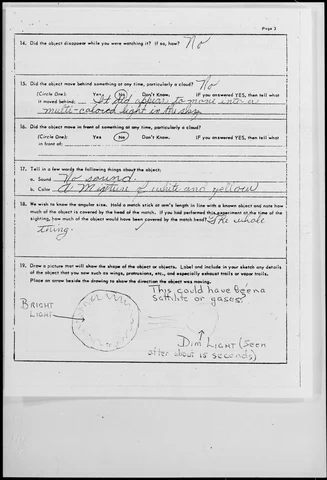 Page 3
14. Did the object disappear while you were watching it? If so, how? No
15. Did the object move behind something at any time, particularly a cloud? No
(Circle One): Yes No Don't Know. IF you answered YES, then tell what
it moved behind: It did appear to move into a
multi-colored light in the sky.
16. Did the object move in front of something at any time, particularly a cloud?
(Circle One): Yes No Don't Know. IF you answered YES, then tell what
in front of:
17. Tell in a few words the following things about the object:
a. Sound No sound.
b. Color A Mixture of white and yellow
18. We wish to know the angular size. Hold a match stick at arm's length in line with a known object and note how
much of the object is covered by the head of the match. If you had performed this experiment at the time of the
sighting, how much of the object would have been covered by the match head? The whole
thing.
19. Draw a picture that will show the shape of the object or objects. Label and include in your sketch any details
of the object that you saw such as wings, protrusions, etc., and especially exhaust trails or vapor trails.
Place an arrow beside the drawing to show the direction the object was moving.
This could have been a
Sattilite or gases?
BRIGHT
LIGHT
DIM LIGHT (Seen
after about 15 seconds)